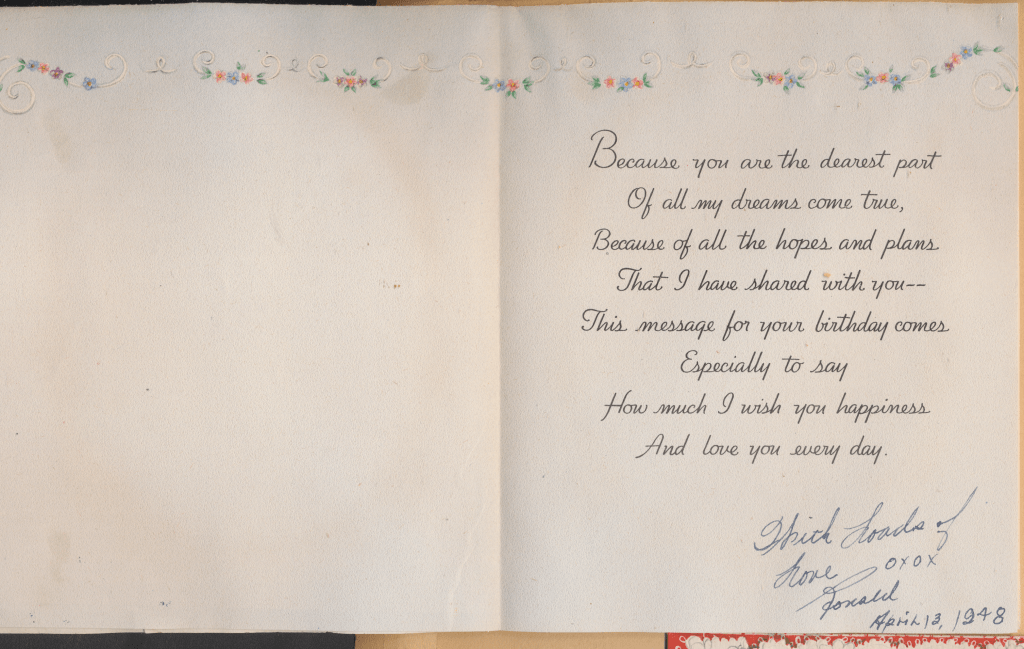 Because you are the dearest part
Of all my dreams come true,
Because of all the hopes and plans
That I have shared with you--
This message for your birthday comes
Especially to say
How much I wish you happiness
And love you every day.
With Loads of
Love OXOX
Ronald
April 13, 1948